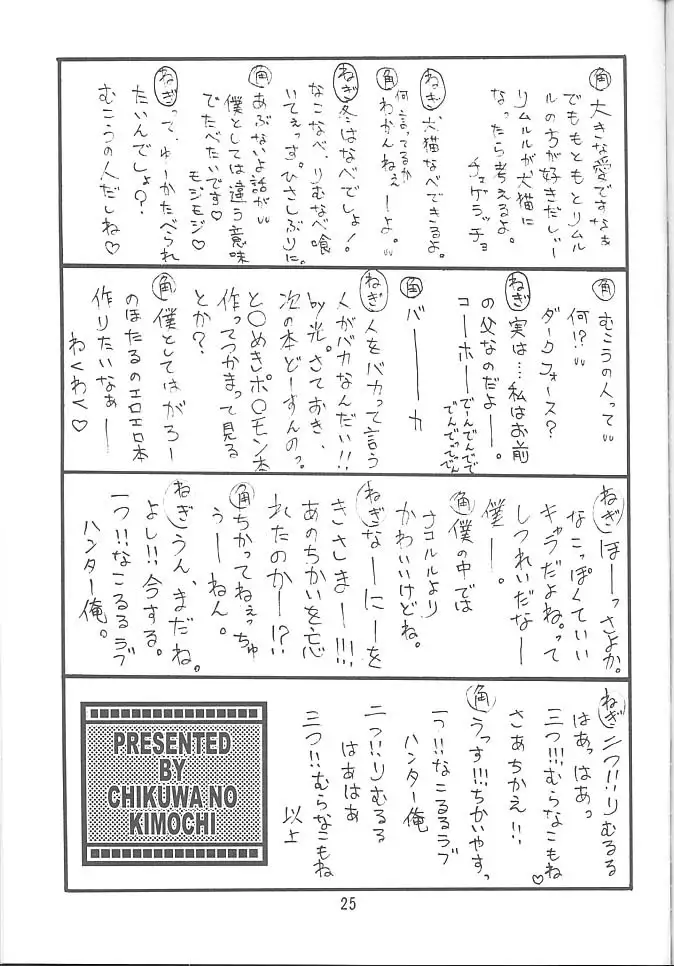 角 大きな愛ですなぁ
でももともとリムル
ルの方が好きだしぃー
リムルルが犬猫に
なったら考えるよ。
チェゲラッチョ
ねぎ 犬猫なべできるよ。
角 何言ってるか
わかんねぇーよ。
ねぎ 冬はなべでしょ!
なこなべ、りむなべ喰
いてぇっす。ひさしぶりに。
角 あぶないよ話が
僕としては違う意味
でたべたいです♡
モジモジ♡
ねぎ って、ゆーかたべられ
たいんでしょ?
むこうの人だしね♡
角 むこうの人って
何!?
ダークフォース?
ねぎ 実は…私はお前
の父なのだよー。
コーホー でーんでんでんで
でんでっでん
角 バーーーカ
ねぎ 人をバカって言う
人がバカなんだい!!
by光。さておき、
次の本どーすんの?
と〇めきポ〇モン本
作ってつかまって見る
とか?
角 僕としてはがろー
のほたるのエロエロ本
作りたいなぁー
わくわく♡
ねぎ ほーっさよか。
なこっぽくていい
キャラだよね。って
しつれいだなー
僕ー。
角 僕の中では
ナコルルより
かわいいけどね。
ねぎ なーにーを
きさしまー!!!
あのちかいを忘
れたのかー!?
角 ちかってねぇっちゅ
うーねん。
ねぎ うん、まだね。
よし!!今する。
一つ!!なこるるラブ
ハンター俺。
ねぎ 二つ!!りむるる
はあっはぁっ
三つ!!!むらなこもね♡
さあちかえ!!
角 うっす!!!ちかいやすっ
一つ!!なこるるラブ
ハンター俺
二つ!!りむるる
はあはあ
三つ!!むらなこもね
以上
PRESENTED
BY
CHIKUWA NO
KIMOCHI
25